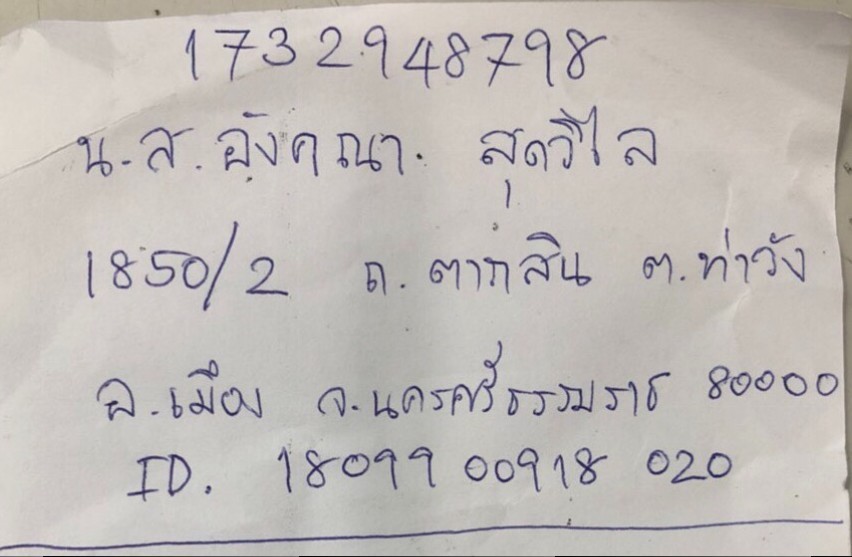 1732948798
น.ส.อังคณา. สุดวิไล
1850/2 ถ.ตากสิน ต.ท่าวัง
อ.เมือง จ.นครศรีธรรมราช 80000
ID. 18099 00918 020